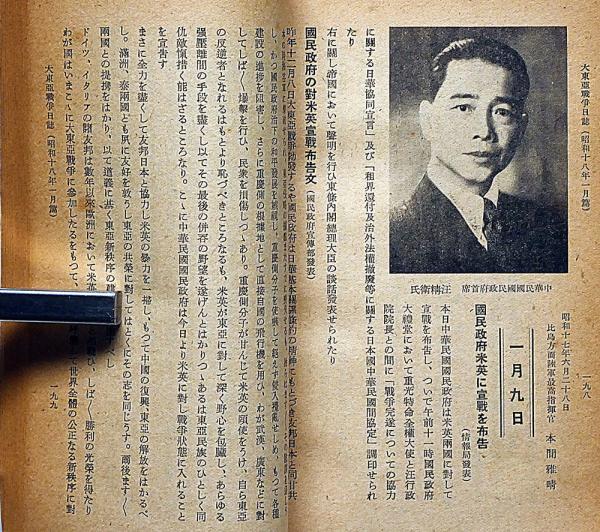 大東亞戰爭日誌（昭和十八年一月篇）
一九八
昭和十七年六月二十八日
比島方面陸軍最高指揮官　本間雅晴
一月九日
國民政府米英に宣戰を布告（情報局發表）
本日中華民國國民政府は米英兩國に對して
宣戰を布告し、ついで午前十一時國民政府
大禮堂において重光特命全權大使と汪行政
院院長との間に「戰爭完遂についての協力
中華民國國民政府首席　汪精衞氏
に關する日華協同宣言」及び「租界還付及び治外法權撤廢等に關する日本國中華民國間協定」調印せられ
たり
右に關し帝國において聲明を行ひ東條內閣總理大臣の談話發表せられたり
國民政府の對米英宣戰布告文（國民政府宣傳部發表）
昨年十二月八日大東亞戰爭勃發するや國民政府は日華基本關係條約の精神にもとづき友邦日本と同甘共
し、かつ國民政府治下の和平發展を
重慶側分子を使嗾して
せしめ、もつて各種
建設の進捗を阻害し、さらに重慶側の根據地として直接自國の飛行機を用ひ、わが武漢、廣東などに對
してしば〱爆擊を行ひ、民衆を損傷しつゝあり。重慶側分子が甘んじて米英の頤使をうけ、自ら東亞
の反逆者となれるはもとより恥づべきところなるも、米英が東亞に對して深く野心を包藏し、あらゆる
强壓離間の手段を盡くし以てその最後の併吞の野望を遂げんとはかりつゝあるは東亞民族のひとしく同
仇敵愾措く能はざるところなり。こゝに中華民國國民政府は今日より米英に對し戰爭狀態に入れること
を宣告す
まさに全力を盡くして友邦日本と協力し米英の暴力を一掃し、もつて中國の復興、東亞の解放をはかるべ
し。滿洲、泰兩國とも夙に友好を敦うし東亞の共榮に對してはとくにその志を同じうす。爾後ます〱
兩國との提携をはかり、以て道義に基く東亞新秩序の建
べし
ドイツ、イタリアの關友邦は數年以來歐洲において米英
戰ひ、しば〱勝利の光榮を得たり
わが國はいまこゝに大東亞戰爭に參加したるをもつて、
世界全體の公正なる新秩序に對
大東亞戰爭日誌（昭和十八年一月篇）
一九九